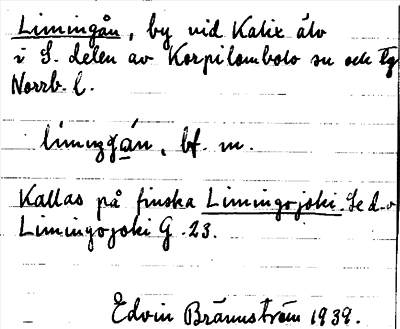 Limingån, by vid Kalix älv
i S. delen av Korpilombolo sn och tg
Norrb. l.
límiŋgån, bf. m.
Kallas på finska Limingojoki. Se d.o
Limingojoki G. 23.
Edvin Brännström 1939.